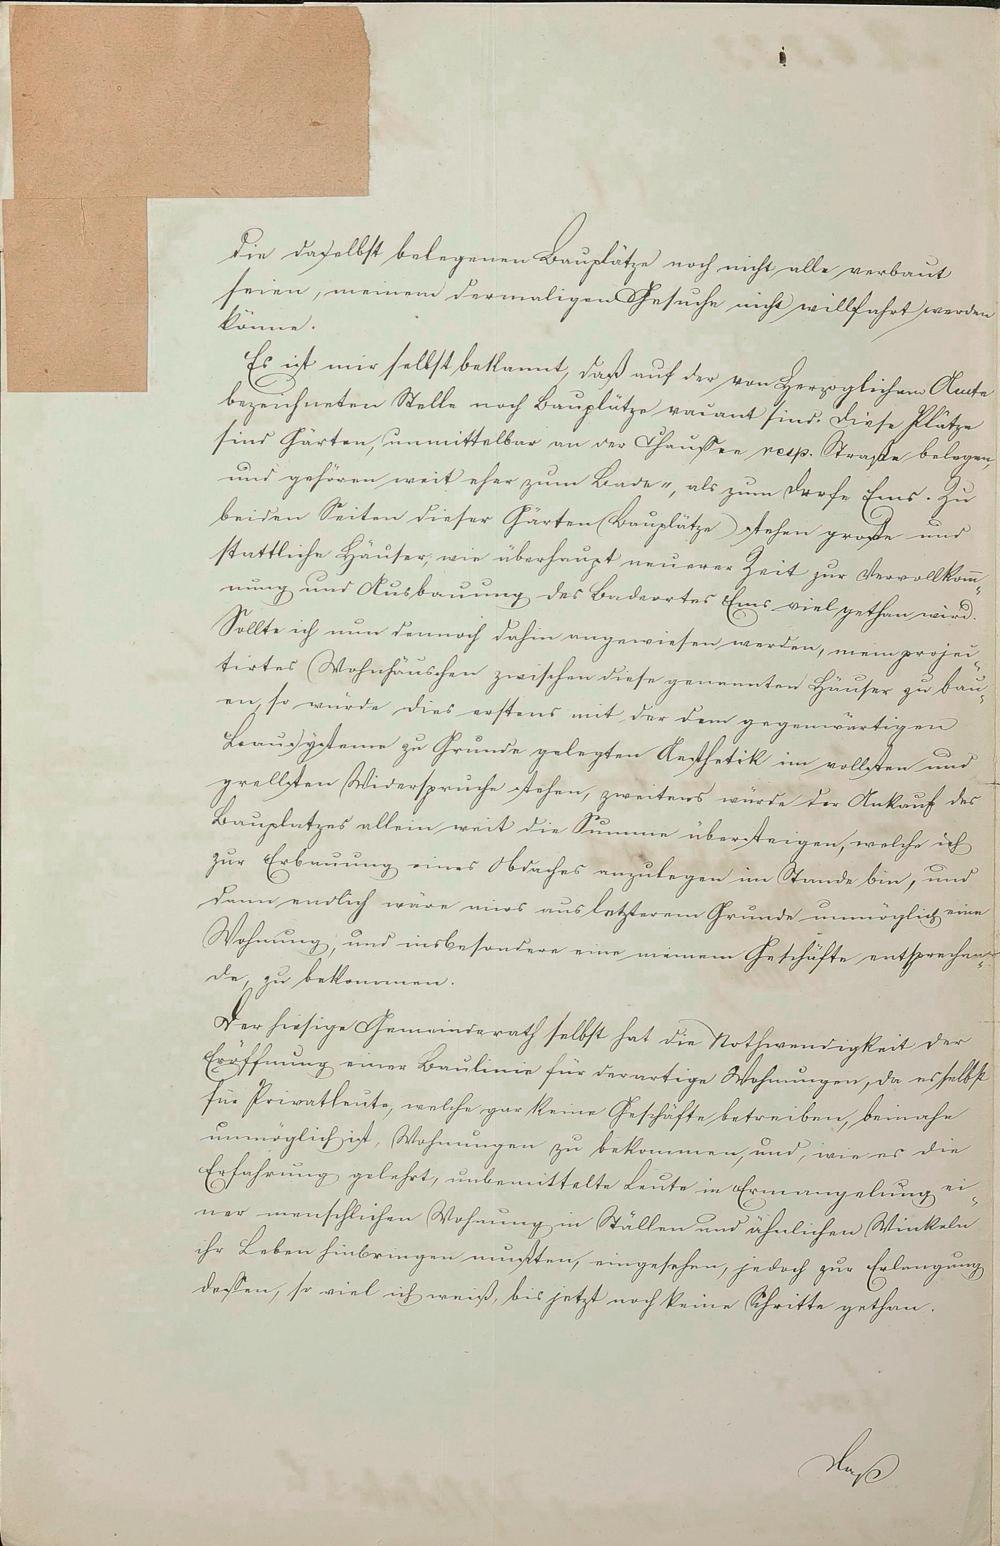 die daselbst belegenen Bauplätze noch nicht alle verbaut
seien, meinem dermaligen Gesuche nicht willfahrt werden
könne.
Es ist mir selbst bekannt, daß auf der von Herzoglichem Amte
bezeichneten Stelle noch Bauplätze vacant sind. Diese Plätze
sind Gärten, unmittelbar an der Chaussee resp. Straße belegen,
und gehören weit eher zum Bade-, als zum Dorfe Ems. Zu
beiden Seiten dieser Gärten (Bauplätze) stehen große und
stattliche Häuser, wie überhaupt neuerer Zeit zur Vervollkom̅-
nung und Ausbauung des Badeortes Ems viel gethan wird.
Sollte ich nun dennoch dahin angewiesen werden, mein projec-
tirtes Wohnhäuschen zwischen diese genannten Häuser zu bau-
en, so würde dies erstens mit der dem gegenwärtigen
Bausysteme zu Grunde gelegten Aesthetik im vollsten und
grellsten Widerspruche stehen, zweitens würde der Ankauf des
Bauplatzes allein weit die Summe übersteigen, welche ich
zur Erbauung eines Obdaches anzulegen im Stande bin, und
dann endlich wäre mirs aus letzterem Grunde unmöglich eine
Wohnung, und insbesondere eine meinem Geschäfte entsprechen-
de, zu bekommen.
Der hiesige Gemeinderath selbst hat die Nothwendigkeit der
Eröffnung einer Baulinie für derartige Wohnungen, da es selbst
für Privatleute, welche gar keine Geschäfte betreiben, beinahe
unmöglich ist, Wohnungen zu bekommen, und, wie es die
Erfahrung gelehrt, unbemittelte Leute in Ermangelung ei-
ner menschlichen Wohnung in Ställen und ähnlichen Winkeln
ihr Leben hinbringen mußten, eingesehen, jedoch zur Erlangung
dessen, so viel ich weiß, bis jetzt noch keine Schritte gethan.
Daß